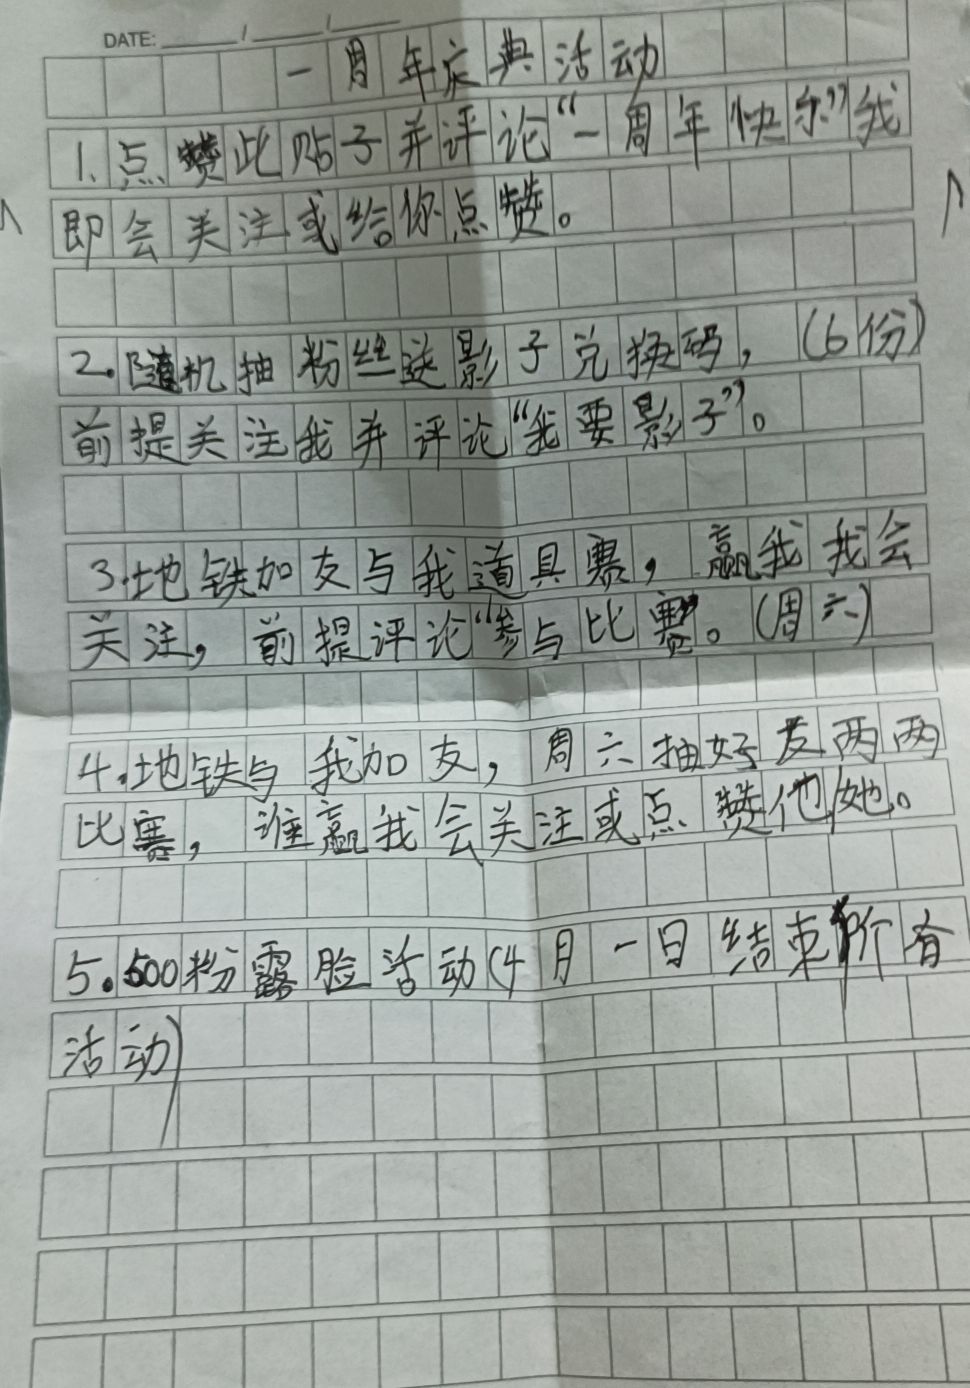 DATE: / /
一周年庆典活动
1.点赞此贴子并评论“一周年快尔”我
即会关注或给你点赞。
2.随机抽粉丝送影子兑换码，(6份)
前提关注我并评论“我要影子”。
3.地铁加友与我道具赛，赢我我会
关注，前提评论“参与比赛”。(周六)
4.地铁与我加友，周六抽好友两两
比赛，谁赢我会关注或点赞他/她。
5.500粉露脸活动(4月一日结束所有
活动)